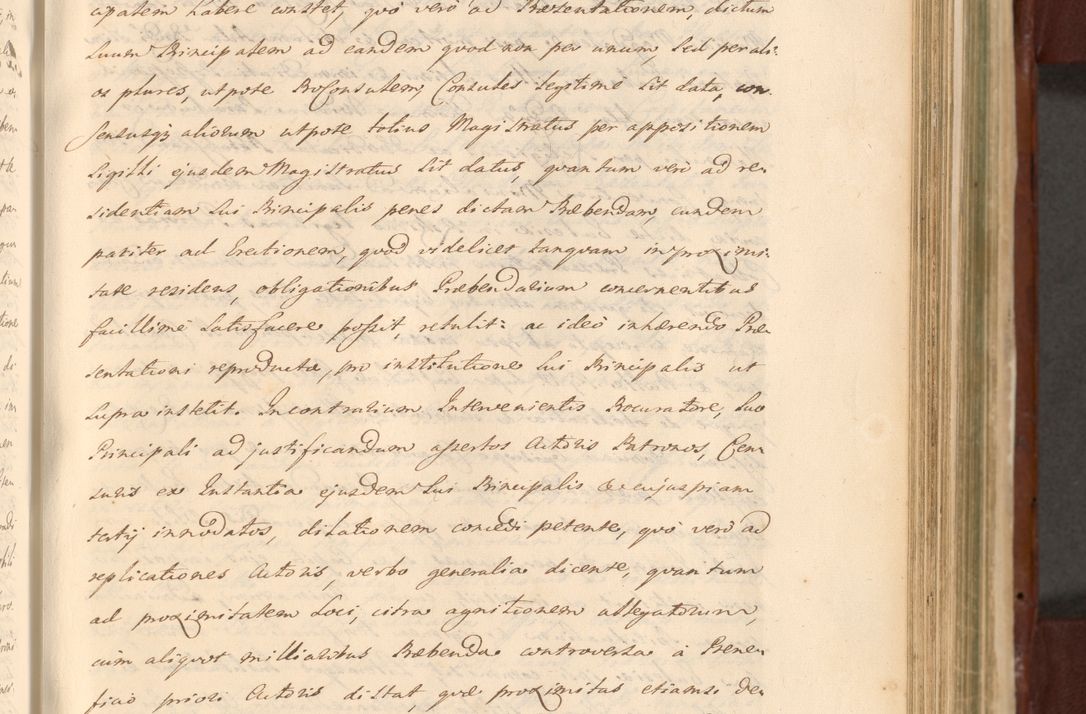 cipatem habere constet, quò verò ad Præsentationem, dictum
Suum Principalem ad eandem quod non per unum, sed per ali-
os plures, utpote ProConsulem, Consules legitimè sit data, con-
sensusq; aliorum utpote totius Magistratus per appositionem
Sigilli ejusdem Magistratus sit datus, quantum verò ad re-
sidentiam sui Principalis penes dictam Præbendam, eundem
pariter ad Erectionem, quòd videlicet tanquam in proximi-
tate residens, obligationibus Præbendarium concernentibus
facillimè satisfacere possit, retulit: ac ideò inhærendo Præ-
sentationi reproductæ, pro institutione sui Principalis ut
supra institit. In contrarium Intervenientis Procuratore, suo
Principali ad justificandum assertos Actoris Patronos, Cen-
suris ex Instantia ejusdem sui Principalis & cujuspiam
tertij innodatos, dilationem concedi petente, quò verò ad
replicationes Actoris, verbo generalia dicente, quantum
ad proximitatem loci, citra agnitionem allegatorum,
cùm aliquot milliaribus Præbenda controversa à Bene-
ficio priori Actoris distat, quæ proximitas etiamsi de-